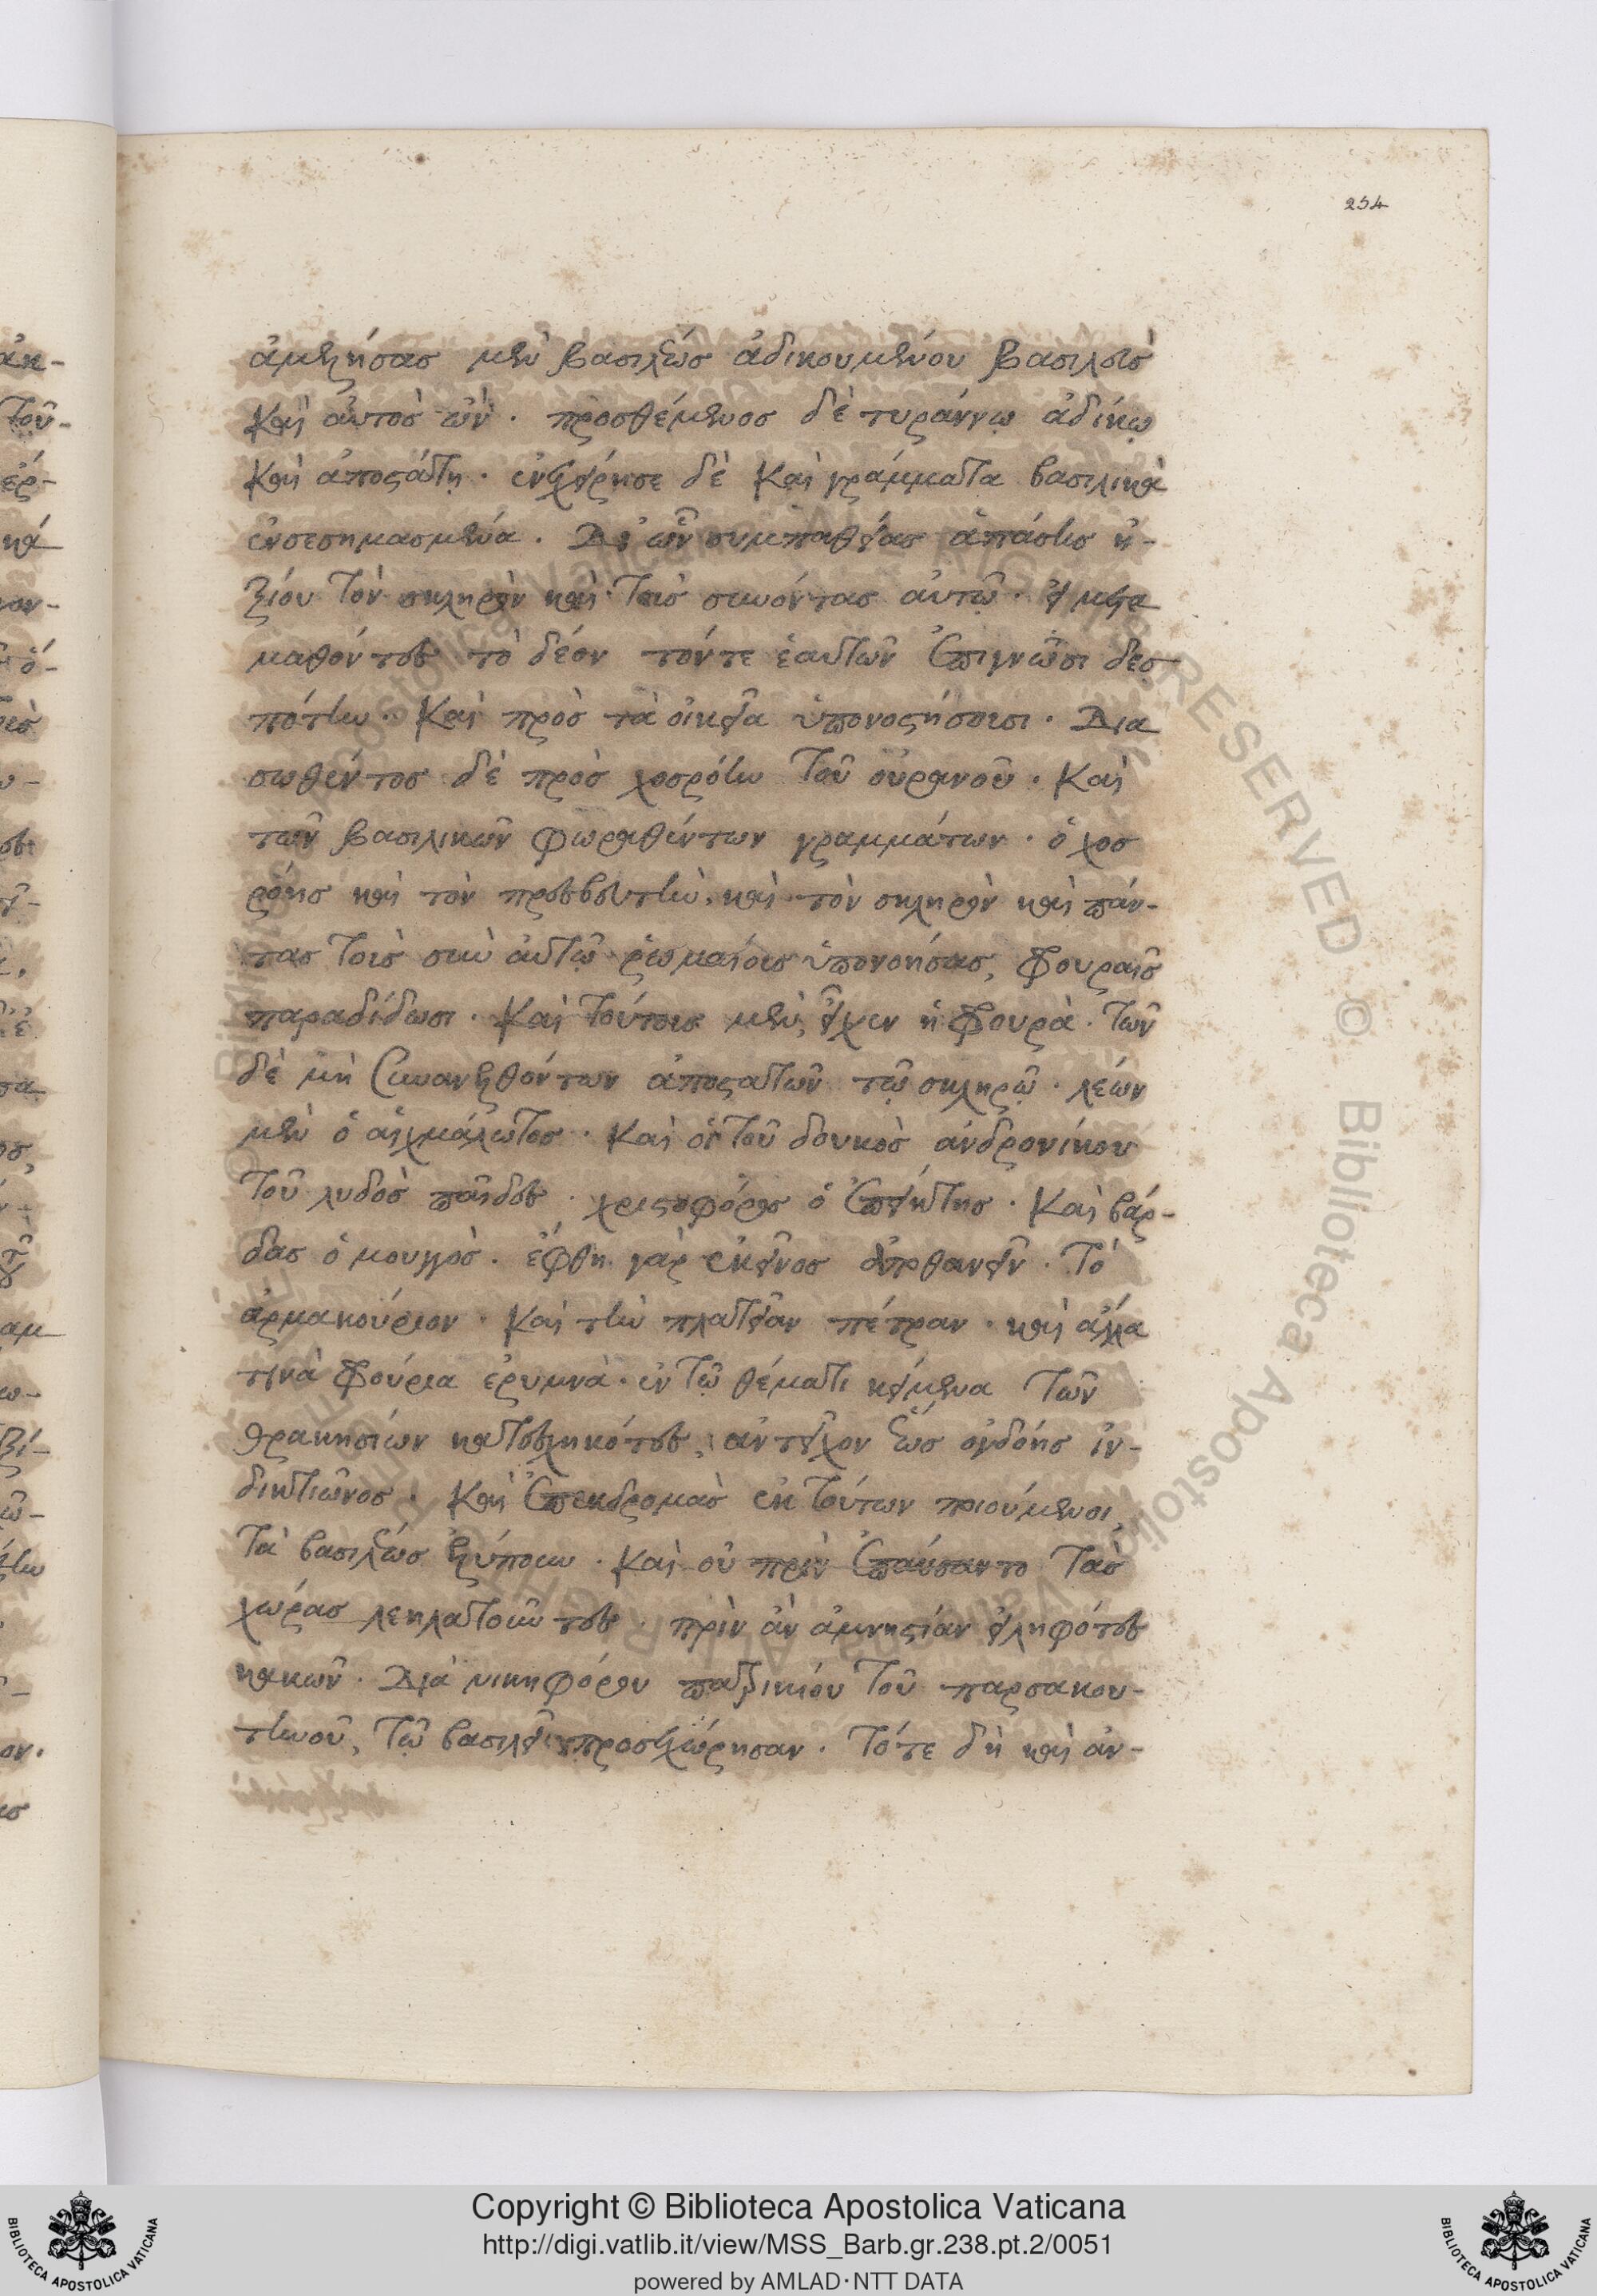 254
ἀμελήσας μὲν βασιλέως ἀδικουμένου βασιλεὺς
καὶ αὐτὸς ὢν. προσθέμενος δὲ τυράννῳ ἀδίκῳ
καὶ ἀποστάτῃ. ἐνεχείρησε δὲ καὶ γράμματα βασιλικὰ
ἐνσεσημασμένα. Δι' ὧν συμπαθείας ἁπάσης ἠ-
ξίου τὸν σκληρὸν καὶ τοὺς συνόντας αὐτῷ. εἰ μετα
μαθόντες τὸ δέον τόντε ἑαυτῶν ἐπιγνῶσι δεσ
πότην. Καὶ πρὸς τὰ οἰκεῖα ὑπονοστήσουσι. Δια
σωθέντος δὲ πρὸς χοσρόην τοῦ οὐρανοῦ. Καὶ
τῶν βασιλικῶν φωραθέντων γραμμάτων. ὁ χοσ
ρόης καὶ τὸν πρεσβευτὴν, καὶ τὸν σκληρὸν καὶ πάν-
τας τοὺς σὺν αὐτῷ ῥωμαίους ὑπονοήσας, φρουραῖς
παραδίδωσι. Καὶ τούτους μὲν, εἶχεν ἡ φρουρὰ. τῶν
δὲ μὴ συνανελθόντων ἀποστατῶν τῷ σκληρῷ. λέων
μὲν ὁ αἰχμάλωτος. Καὶ οἱ τοῦ δουκὸς ἀνδρονίκου
τοῦ λυδοῦ παῖδες. χριστοφόρος ὁ ἐπείκτης. Καὶ βάρ-
δας ὁ μουγγὸς. ἔφθη γὰρ ἐκεῖνος ἀποθανεῖν. Τό
ἀρμακούριον. Καὶ τὴν πλατεῖαν πέτραν. καὶ ἄλλα
τινὰ φρούρια ἐρυμνὰ. ἐν τῷ θέματι κείμενα τῶν
θρακησίων κατεσχηκότες, ἀντεῖχον ἕως ὀγδόης ἰν-
δικτιῶνος. Καὶ ἐπεκδρομὰς ἐκ τούτων ποιούμενοι,
τὰ βασιλέως ἐλύπουν. Καὶ οὐ πρὶν ἐπαύσαντο τὰς
χώρας λεηλατοῦντες. πρὶν ἂν ἀμνηστίαν εἰληφότες
κακῶν. Διὰ νικηφόρου πατρικίου τοῦ παρσακου-
τηνοῦ, τῷ βασιλεῖ προσεχώρησαν. Τότε δὴ καὶ ἀν-
Copyright © Biblioteca Apostolica Vaticana
http://digi.vatlib.it/view/MSS_Barb.gr.238.pt.2/0051
powered by AMLAD·NTT DATA